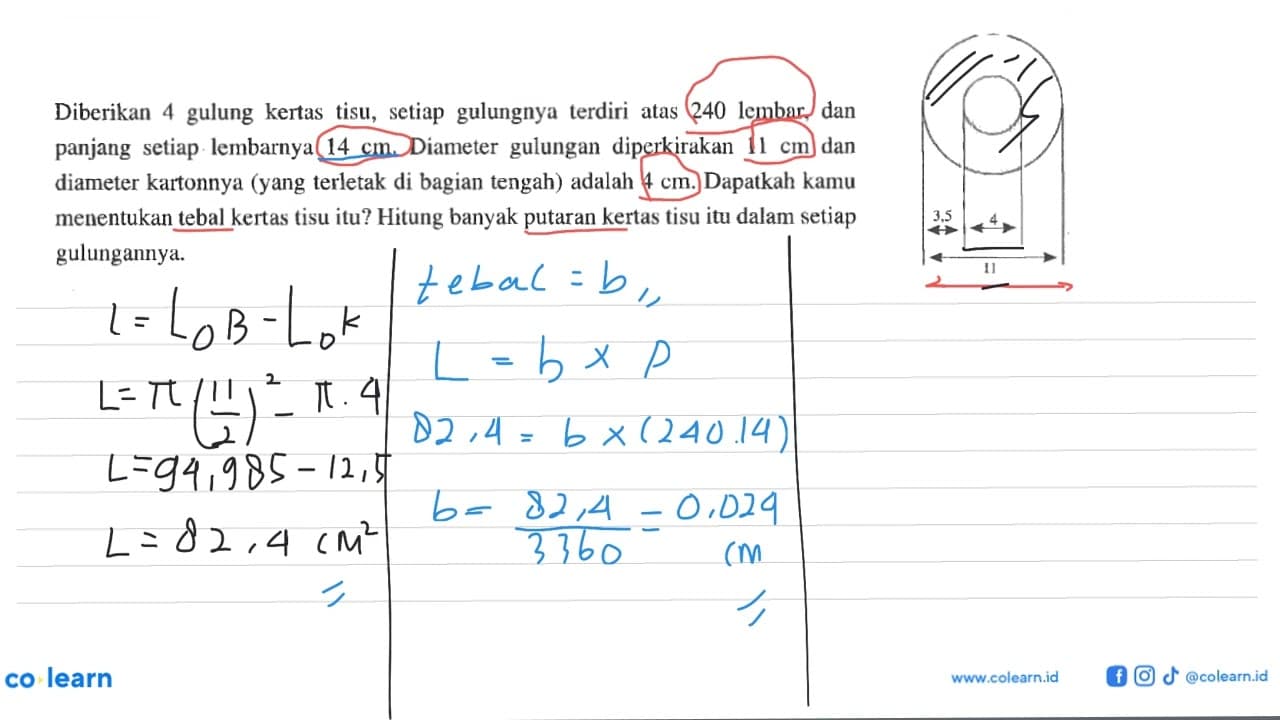 Diberikan 4 gulung kertas tisu, setiap gulungnya terdiri atas 240 lembar, dan
panjang setiap lembarnya 14 cm. Diameter gulungan diperkirakan 11 cm dan
diameter kartonnya (yang terletak di bagian tengah) adalah 4 cm. Dapatkah kamu
menentukan tebal kertas tisu itu? Hitung banyak putaran kertas tisu itu dalam setiap
gulungannya.
3,5 4
11
L = LOB - LOK
L = π (11/2)² - π . 4
L = 94,985 - 12,5
L = 82,4 cm²
tebal = b
L = b x p
82,4 = b x (240.14)
b = 82,4/3360 = 0,029
cm
co learn
www.colearn.id
@colearn.id